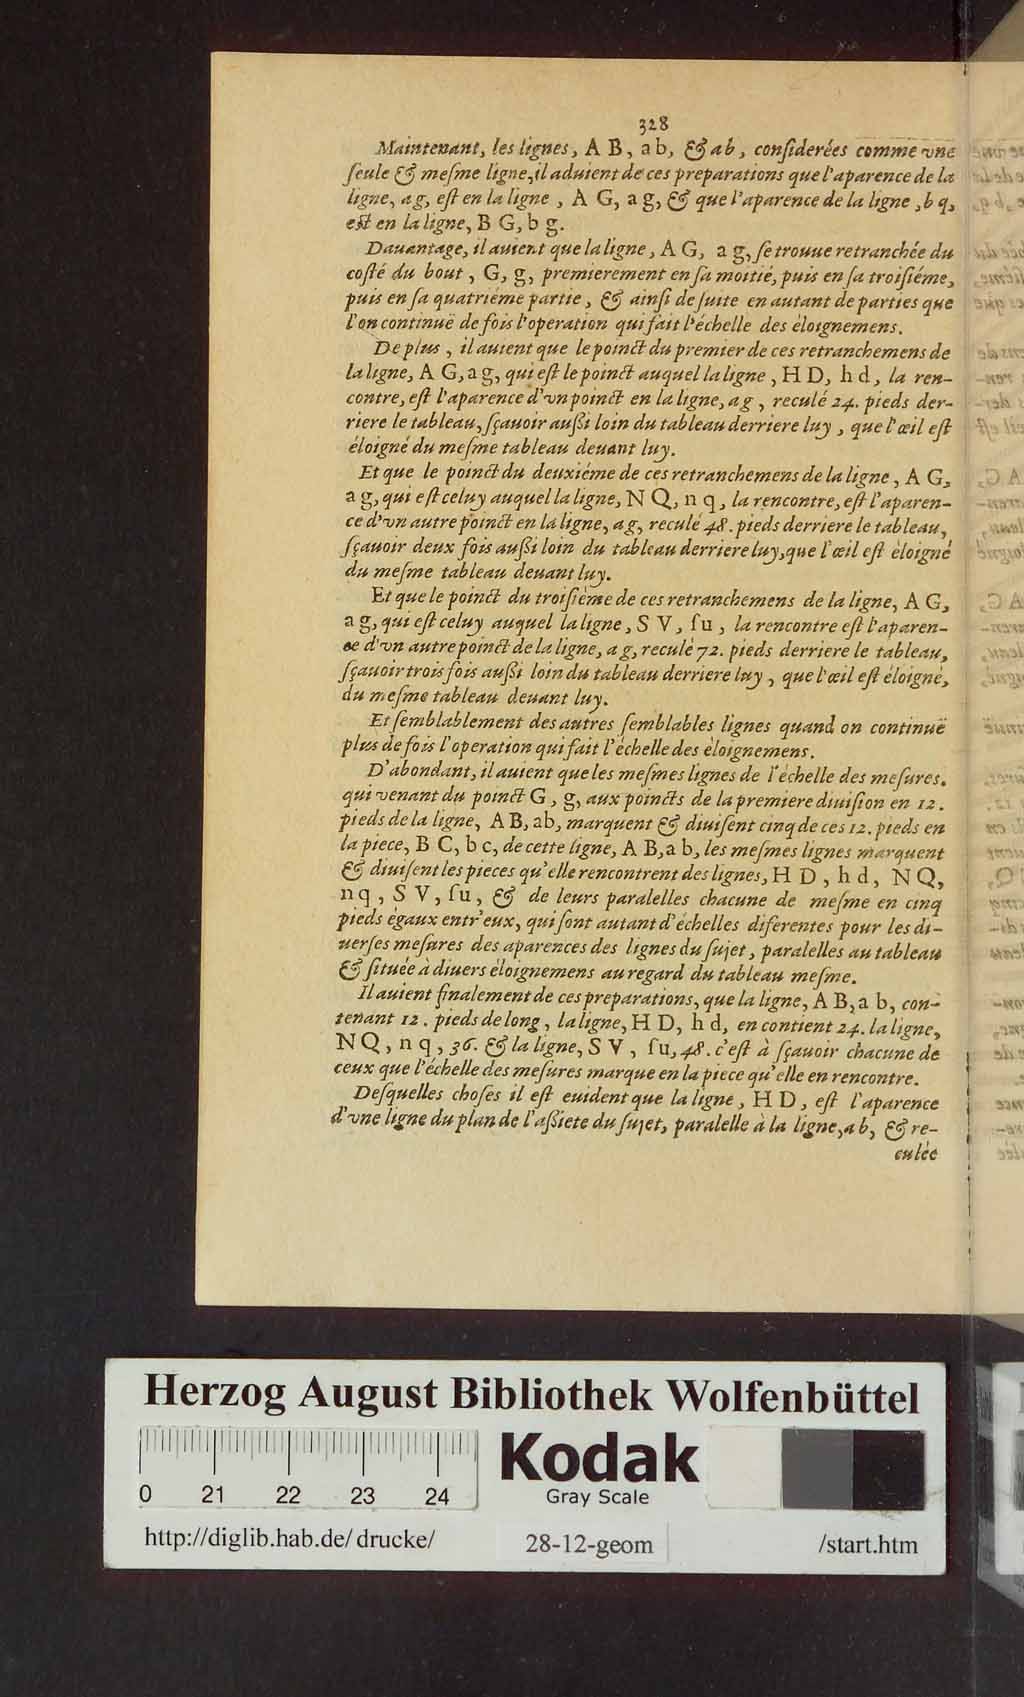 328
Maintenant, les lignes, A B, a b, & ab, conſiderées comme vne
ſeule & meſme ligne, il aduient de ces preparations que l'aparence de la
ligne, ag, eſt en la ligne, A G, a g, & que l'aparence de la ligne, b q,
eſt en la ligne, B G, b g.
Dauantage, il auient que la ligne, A G, a g, ſe trouue retranchée du
coſté du bout, G, g, premierement en ſa moitié, puis en ſa troiſiéme,
puis en ſa quatriéme partie, & ainſi de ſuite en autant de parties que
l'on continuë de fois l'operation qui fait l'échelle des éloignemens.
De plus, il auient que le poinct du premier de ces retranchemens de
la ligne, A G, a g, qui eſt le poinct auquel la ligne, H D, h d, la ren-
contre, eſt l'aparence d'vn poinct en la ligne, ag, reculé 24. pieds der-
riere le tableau, ſçauoir auſſi loin du tableau derriere luy, que l'œil eſt
éloigné du meſme tableau deuant luy.
Et que le poinct du deuxiéme de ces retranchemens de la ligne, A G,
a g, qui eſt celuy auquel la ligne, N Q, n q, la rencontre, eſt l'aparen-
ce d'vn autre poinct en la ligne, ag, reculé 48. pieds derriere le tableau,
ſçauoir deux fois auſſi loin du tableau derriere luy, que l'œil eſt éloigné
du meſme tableau deuant luy.
Et que le poinct du troiſiéme de ces retranchemens de la ligne, A G,
a g, qui eſt celuy auquel la ligne, S V, ſu, la rencontre eſt l'aparen-
ce d'vn autre poinct de la ligne, ag, reculé 72. pieds derriere le tableau,
ſçauoir trois fois auſſi loin du tableau derriere luy, que l'œil eſt éloigné,
du meſme tableau deuant luy.
Et ſemblablement des autres ſemblables lignes quand on continuë
plus de fois l'operation qui fait l'échelle des éloignemens.
D'abondant, il auient que les meſmes lignes de l'échelle des meſures.
qui venant du poinct G, g, aux poincts de la premiere diuiſion en 12.
pieds de la ligne, A B, ab, marquent & diuiſent cinq de ces 12. pieds en
la piece, B C, b c, de cette ligne, A B, a b, les meſmes lignes marquent
& diuiſent les pieces qu'elle rencontrent des lignes, H D, h d, N Q,
n q, S V, ſu, & de leurs paralelles chacune de meſme en cinq
pieds égaux entr'eux, qui ſont autant d'échelles diferentes pour les di-
uerſes meſures des aparences des lignes du ſujet, paralelles au tableau
& ſituée à diuers éloignemens au regard du tableau meſme.
Il auient finalement de ces preparations, que la ligne, A B, a b, con-
tenant 12. pieds de long, la ligne, H D, h d, en contient 24. la ligne,
N Q, n q, 36. & la ligne, S V, ſu, 48. c'eſt à ſçauoir chacune de
ceux que l'échelle des meſures marque en la piece qu'elle en rencontre.
Deſquelles choſes il eſt euident que la ligne, H D, eſt l'aparence
d'vne ligne du plan de l'aſſiete du ſujet, paralelle à la ligne, a b, & re-
culée
Herzog August Bibliothek Wolfenbüttel
0 21 22 23 24
Kodak
Gray Scale
http://diglib.hab.de/drucke/ 28-12-geom /start.htm